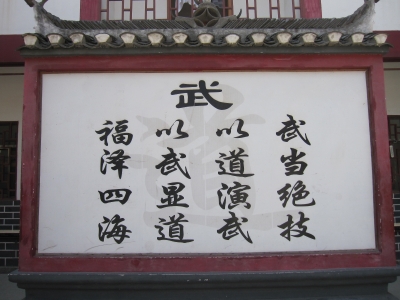 武
武当绝技
以道演武
以武显道
福泽四海
道